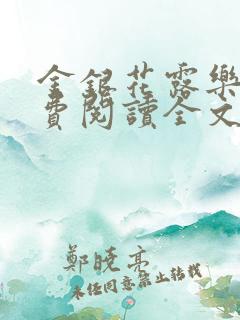 金銀花露樂
費閱讀全文
鄭曉亮
未經同意禁止轉載